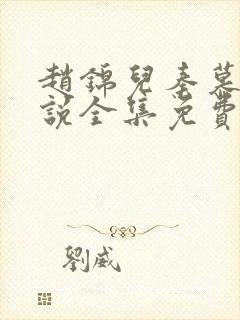 趙錦兒秦慕
說全集免費
劉威